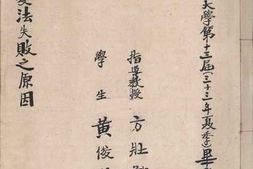 大學第十三屆(三十三年夏季畢
指導教授 方壯
學生 黃俊
法失敗之原因